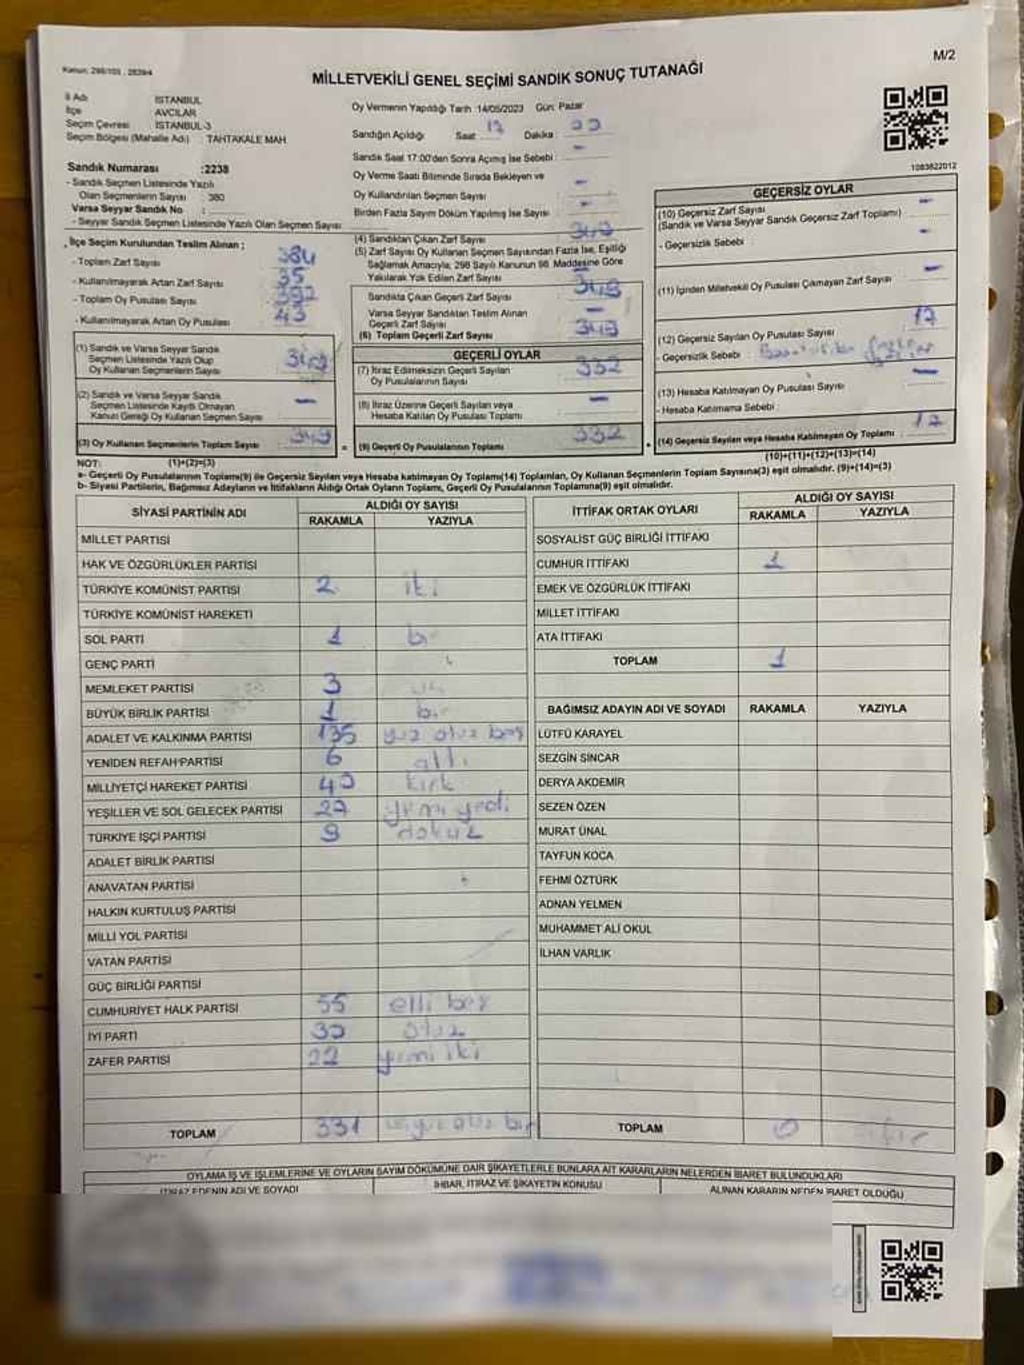 Kanun: 298/105 , 2839/4
M/2
MİLLETVEKİLİ GENEL SEÇİMİ SANDIK SONUÇ TUTANAĞI
İl Adı : İSTANBUL
İlçe AVCILAR
Seçim Çevresi : İSTANBUL-3
Seçim Bölgesi (Mahalle Adı) : TAHTAKALE MAH
Sandık Numarası :2238
- Sandık Seçmen Listesinde Yazılı
Olan Seçmenlerin Sayısı : 380
Varsa Seyyar Sandık No :
- Seyyar Sandık Seçmen Listesinde Yazılı Olan Seçmen Sayısı
Oy Vermenin Yapıldığı Tarih :14/05/2023 Gün: Pazar
Sandığın Açıldığı Saat 17 Dakika
Sandık Saat 17:00'den Sonra Açılmış İse Sebebi : -
Oy Verme Saati Bitiminde Sırada Bekleyen ve
Oy Kullandırılan Seçmen Sayısı -
Birden Fazla Sayım Döküm Yapılmış İse Sayısı -
1083822012
İlçe Seçim Kurulundan Teslim Alınan ;
- Toplam Zarf Sayısı 384
- Kullanılmayarak Artan Zarf Sayısı 35
- Toplam Oy Pusulası Sayısı 392
- Kullanılmayarak Artan Oy Pusulası 43
(1) Sandık ve Varsa Seyyar Sandık
Seçmen Listesinde Yazılı Olup
Oy Kullanan Seçmenlerin Sayısı 349
(2) Sandık ve Varsa Seyyar Sandık
Seçmen Listesinde Kayıtlı Olmayan
Kanun Gereği Oy Kullanan Seçmen Sayısı -
(3) Oy Kullanan Seçmenlerin Toplam Sayısı 349
(4) Sandıktan Çıkan Zarf Sayısı 349
(5) Zarf Sayısı Oy Kullanan Seçmen Sayısından Fazla İse, Eşitliği
Sağlamak Amacıyla, 298 Sayılı Kanunun 98. Maddesine Göre
Yakılarak Yok Edilen Zarf Sayısı -
Sandıkta Çıkan Geçerli Zarf Sayısı 349
Varsa Seyyar Sandıktan Teslim Alınan
Geçerli Zarf Sayısı -
(6) Toplam Geçerli Zarf Sayısı 349
GEÇERLİ OYLAR
(7) İtiraz Edilmeksizin Geçerli Sayılan
Oy Pusulalarının Sayısı 332
(8) İtiraz Üzerine Geçerli Sayılan veya
Hesaba Katılan Oy Pusulası Toplamı -
= (9) Geçerli Oy Pusulalarının Toplamı 332
GEÇERSİZ OYLAR
(10) Geçersiz Zarf Sayısı -
(Sandık ve Varsa Seyyar Sandık Geçersiz Zarf Toplamı)
- Geçersizlik Sebebi : -
(11) İçinden Milletvekili Oy Pusulası Çıkmayan Zarf Sayısı -
(12) Geçersiz Sayılan Oy Pusulası Sayısı 17
- Geçersizlik Sebebi :
(13) Hesaba Katılmayan Oy Pusulası Sayısı -
- Hesaba Katılmama Sebebi :
+ (14) Geçersiz Sayılan veya Hesaba Katılmayan Oy Toplamı 17
(10)+(11)+(12)+(13)=(14)
NOT: (1)+(2)=(3)
a- Geçerli Oy Pusulalarının Toplamı(9) ile Geçersiz Sayılan veya Hesaba katılmayan Oy Toplamı(14) Toplamları, Oy Kullanan Seçmenlerin Toplam Sayısına(3) eşit olmalıdır. (9)+(14)=(3)
b- Siyasi Partilerin, Bağımsız Adayların ve İttifakların Aldığı Ortak Oyların Toplamı, Geçerli Oy Pusulalarının Toplamına(9) eşit olmalıdır.
SİYASİ PARTİNİN ADI ALDIĞI OY SAYISI
RAKAMLA YAZIYLA
MİLLET PARTİSİ
HAK VE ÖZGÜRLÜKLER PARTİSİ
TÜRKİYE KOMÜNİST PARTİSİ 2 iki
TÜRKİYE KOMÜNİST HAREKETİ
SOL PARTİ 1
GENÇ PARTİ
MEMLEKET PARTİSİ 3 üç
BÜYÜK BİRLİK PARTİSİ 1 bir
ADALET VE KALKINMA PARTİSİ 135 yüz otuz beş
YENİDEN REFAH PARTİSİ 6 altı
MİLLİYETÇİ HAREKET PARTİSİ 40 kırk
YEŞİLLER VE SOL GELECEK PARTİSİ 27 yirmi yedi
TÜRKİYE İŞÇİ PARTİSİ 9 dokuz
ADALET BİRLİK PARTİSİ
ANAVATAN PARTİSİ
HALKIN KURTULUŞ PARTİSİ
MİLLİ YOL PARTİSİ
VATAN PARTİSİ
GÜÇ BİRLİĞİ PARTİSİ
CUMHURİYET HALK PARTİSİ 55 elli beş
İYİ PARTİ 30 otuz
ZAFER PARTİSİ 22 yirmi iki
TOPLAM 331 üçyüz otuz bir
İTTİFAK ORTAK OYLARI ALDIĞI OY SAYISI
RAKAMLA YAZIYLA
SOSYALİST GÜÇ BİRLİĞİ İTTİFAKI
CUMHUR İTTİFAKI 1
EMEK VE ÖZGÜRLÜK İTTİFAKI
MİLLET İTTİFAKI
ATA İTTİFAKI
TOPLAM 1
BAĞIMSIZ ADAYIN ADI VE SOYADI RAKAMLA YAZIYLA
LÜTFÜ KARAYEL
SEZGİN SİNCAR
DERYA AKDEMİR
SEZEN ÖZEN
MURAT ÜNAL
TAYFUN KOCA
FEHMİ ÖZTÜRK
ADNAN YELMEN
MUHAMMET ALİ OKUL
İLHAN VARLIK
TOPLAM 0 sıfır
OYLAMA İŞ VE İŞLEMLERİNE VE OYLARIN SAYIM DÖKÜMÜNE DAİR ŞİKAYETLERLE BUNLARA AİT KARARLARIN NELERDEN İBARET BULUNDUKLARI
İTİRAZ EDENİN ADI VE SOYADI İHBAR, İTİRAZ VE ŞİKAYETİN KONUSU ALINAN KARARIN NEDEN İBARET OLDUĞU